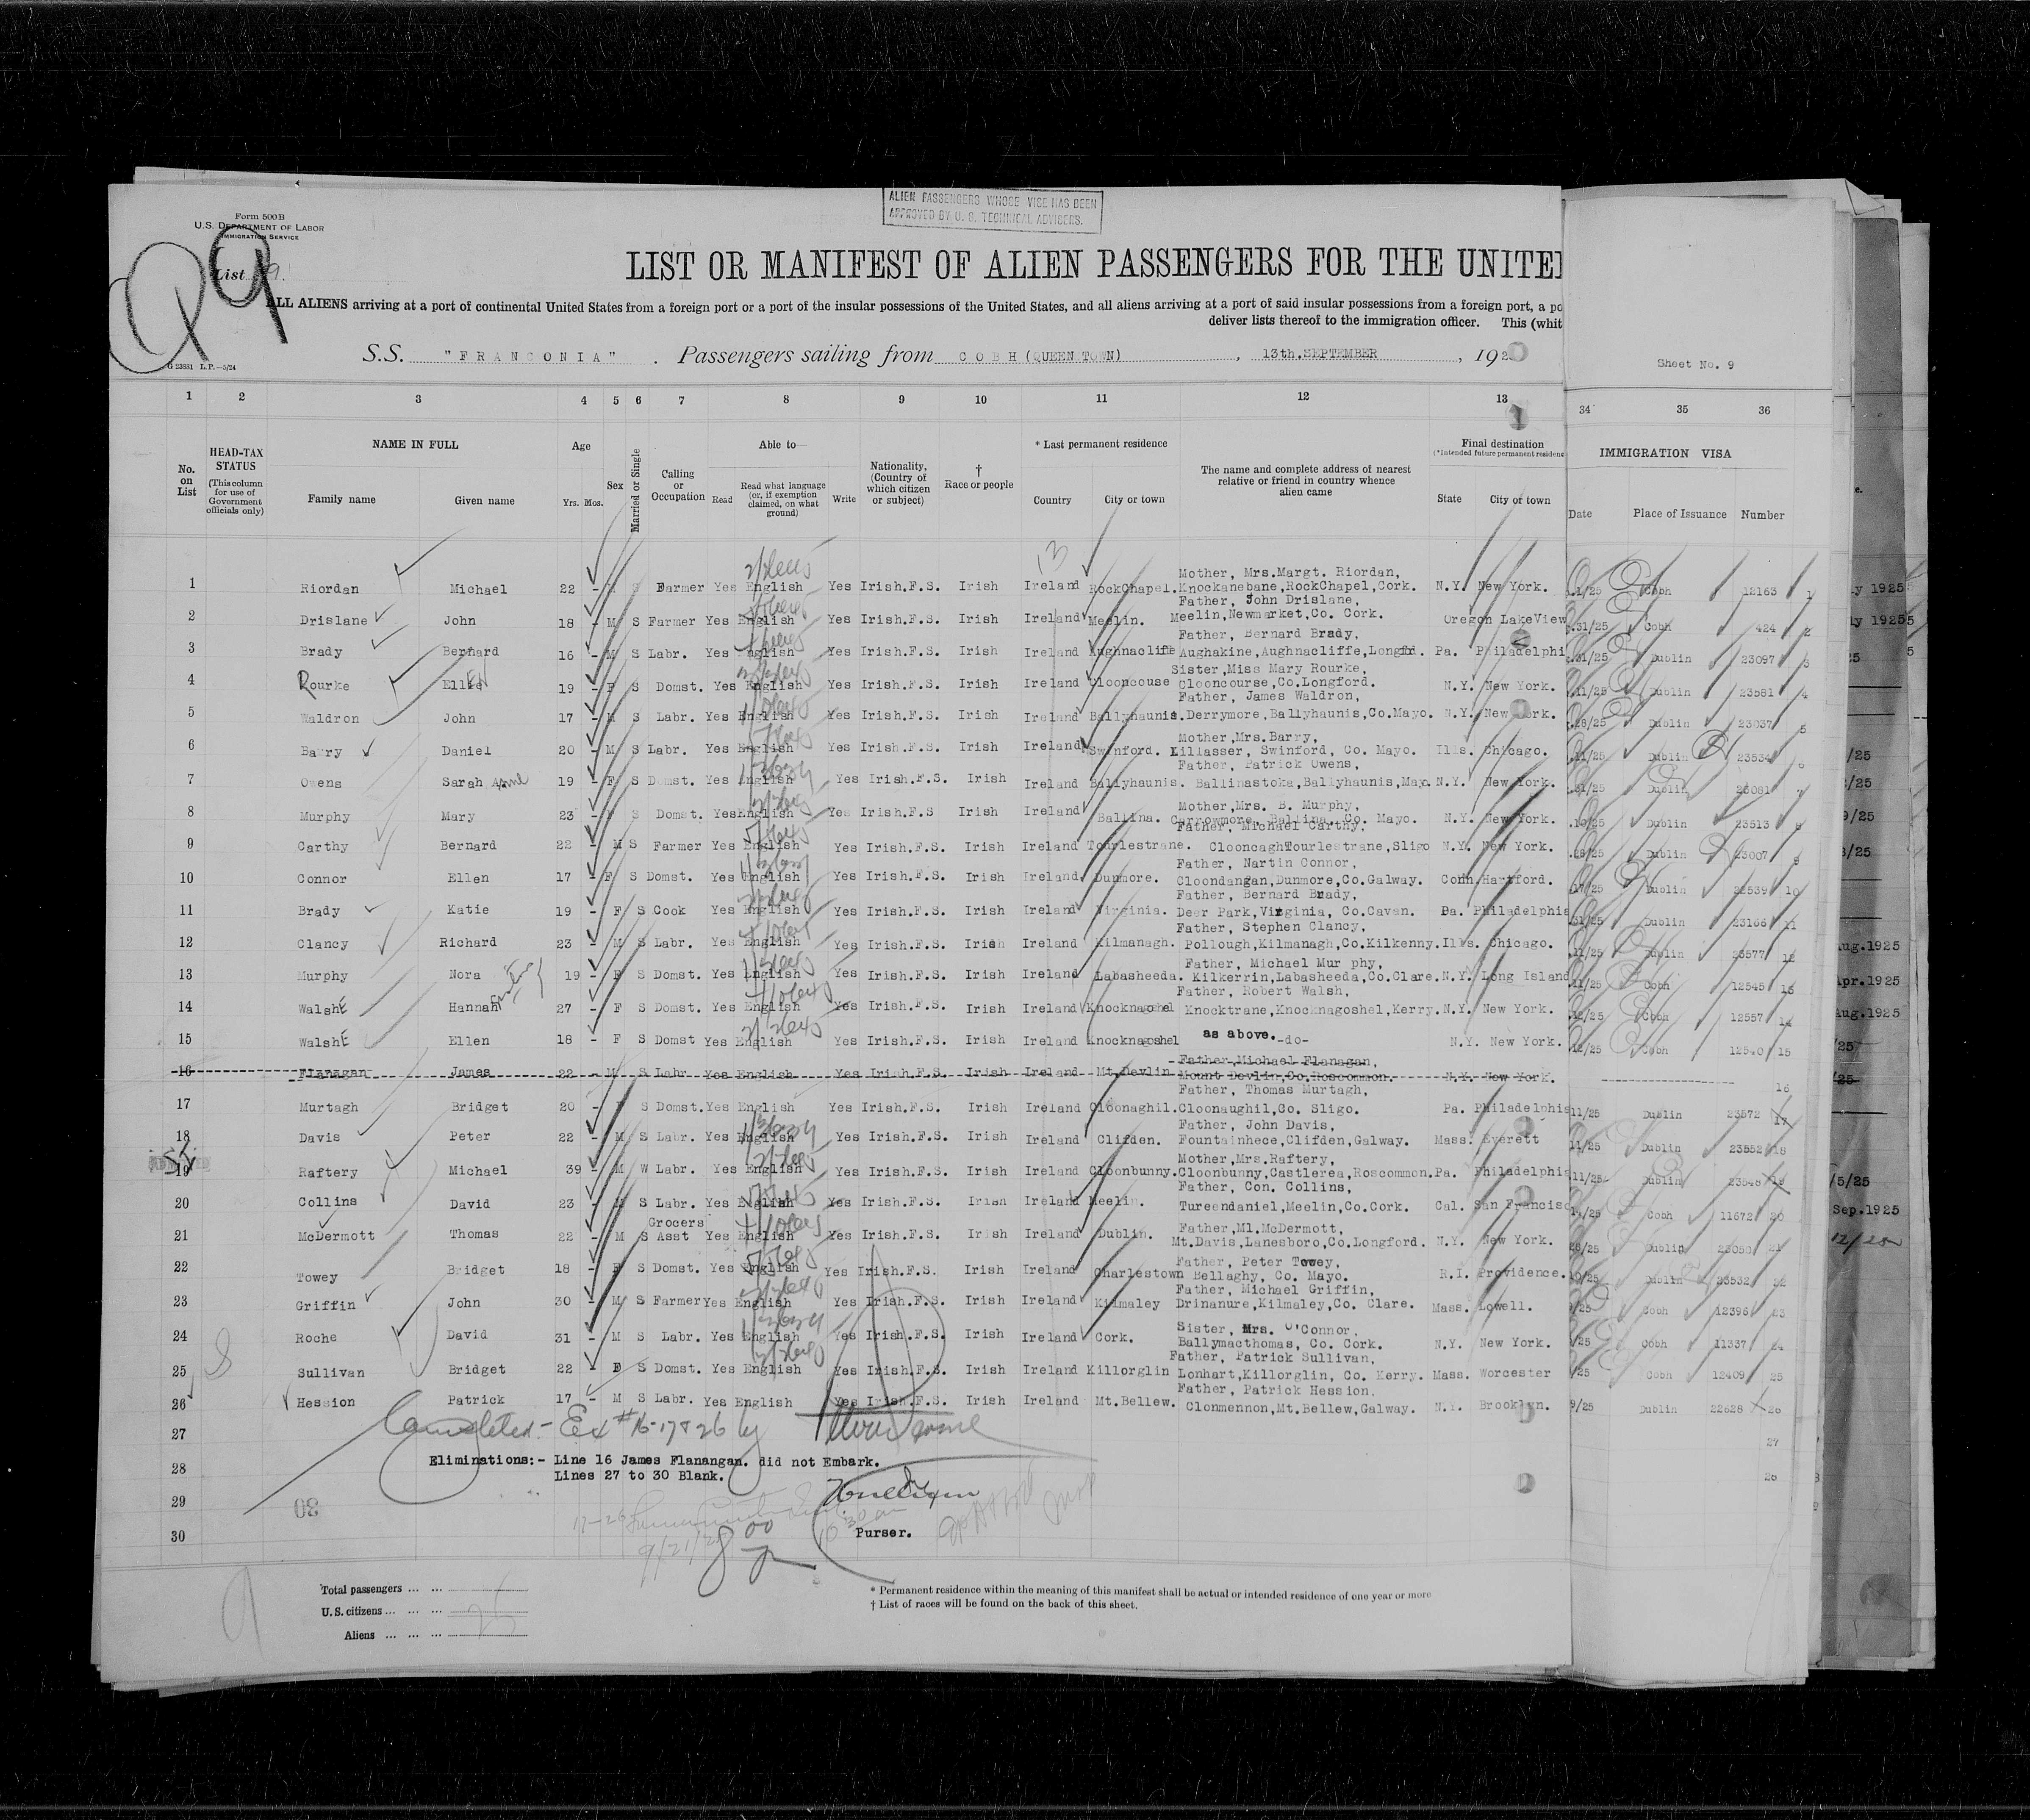 ALIEN PASSENGERS WHOSE VISE HAS BEEN
APPROVED BY U. S. TECHNICAL ADVISERS.
Form 500B
U.S. DEPARTMENT OF LABOR
IMMIGRATION SERVICE
List 9.
9
LIST OR MANIFEST OF ALIEN PASSENGERS FOR THE UNITE
ALL ALIENS arriving at a port of continental United States from a foreign port or a port of the insular possessions of the United States, and all aliens arriving at a port of said insular possessions from a foreign port, a po
deliver lists thereof to the immigration officer. This (whit
S.S. "FRANCONIA". Passengers sailing from COBH (QUEEN TOWN), 13th. SEPTEMBER, 192
G 23881 L.P.—5/24
Sheet No. 9
1 2 3 4 5 6 7 8 9 10 11 12 13 34 35 36
No. on List
HEAD-TAX STATUS (This column for use of Government officials only)
NAME IN FULL
Family name Given name
Age
Yrs. Mos.
Sex
Married or Single
Calling or Occupation
Able to
Read
Read what language (or, if exemption claimed, on what ground)
Write
Nationality, (Country of which citizen or subject)
† Race or people
* Last permanent residence
Country City or town
The name and complete address of nearest relative or friend in country whence alien came
Final destination
(*Intended future permanent residenc
State City or town
IMMIGRATION VISA
Date Place of Issuance Number
13
1 Riordan Michael 22 - M S Farmer Yes English Yes Irish.F.S. Irish Ireland RockChapel. Mother, Mrs.Margt. Riordan, Knockanebane,RockChapel,Cork. N.Y. New York. 1/25 Cobh 12163 1
2 Drislane John 18 - M S Farmer Yes English Yes Irish.F.S. Irish Ireland Meelin. Father, John Drislane, Meelin,Newmarket,Co. Cork. Oregon LakeView .31/25 Cobh 424 2
3 Brady Bernard 16 - M S Labr. Yes English Yes Irish.F.S. Irish Ireland Aughnacliffe Father, Bernard Brady, Aughakine,Aughnacliffe,Longfd. Pa. Philadelphi .31/25 Dublin 23097 3
4 Rourke Ellen 19 - F S Domst. Yes English Yes Irish.F.S. Irish Ireland Clooncouse Sister,Miss Mary Rourke, Clooncourse,Co.Longford. N.Y. New York. .11/25 Dublin 23581 4
5 Waldron John 17 - M S Labr. Yes English Yes Irish.F.S. Irish Ireland Ballyhaunis. Father, James Waldron, Derrymore,Ballyhaunis,Co.Mayo. N.Y. New York. .28/25 Dublin 23037 5
6 Barry Daniel 20 - M S Labr. Yes English Yes Irish.F.S. Irish Ireland Swinford. Mother,Mrs.Barry, Killasser, Swinford, Co. Mayo. Ills. Chicago. .11/25 Dublin 23534 6
7 Owens Sarah Anne 19 - F S Domst. Yes English Yes Irish.F.S. Irish Ireland Ballyhaunis. Father, Patrick Owens, Ballinastoka,Ballyhaunis,Mayo N.Y. New York. .31/25 Dublin 23081 7
8 Murphy Mary 23 - F S Domst. Yes English Yes Irish.F.S Irish Ireland Ballina. Mother,Mrs. B. Murphy, Carrowmore, Ballina, Co. Mayo. N.Y. New York. .10/25 Dublin 23513 8
9 Carthy Bernard 22 - M S Farmer Yes English Yes Irish.F.S. Irish Ireland Tourlestrane. Father, Michael Carthy, Clooncagh Tourlestrane,Sligo N.Y. New York. .28/25 Dublin 23007 9
10 Connor Ellen 17 - F S Domst. Yes English Yes Irish.F.S. Irish Ireland Dunmore. Father, Nartin Connor, Cloondangan,Dunmore,Co.Galway. Conn. Hartford. 17/25 Dublin 22539 10
11 Brady Katie 19 - F S Cook Yes English Yes Irish.F.S. Irish Ireland Virginia. Father, Bernard Brady, Deer Park,Virginia, Co.Cavan. Pa. Philadelphia 31/25 Dublin 23166 11
12 Clancy Richard 23 - M S Labr. Yes English Yes Irish.F.S. Irish Ireland Kilmanagh. Father, Stephen Clancy, Pollough,Kilmanagh,Co.Kilkenny. Ills. Chicago. .11/25 Dublin 23577 12
13 Murphy Nora 19 - F S Domst. Yes English Yes Irish.F.S. Irish Ireland Labasheeda. Father, Michael Mur phy, Kilkerrin,Labasheeda,Co.Clare. N.Y. Long Island .11/25 Cobh 12545 13
14 Walsh Hannah 27 - F S Domst. Yes English Yes Irish.F.S. Irish Ireland Knocknagoshel Father, Robert Walsh, Knocktrane,Knocknagoshel,Kerry. N.Y. New York. .12/25 Cobh 12557 14
15 Walsh Ellen 18 - F S Domst Yes English Yes Irish.F.S. Irish Ireland Knocknagoshel as above. -do- N.Y. New York. 12/25 Cobh 12540 15
16 Flanagan James 22 - M S Labr Yes English Yes Irish.F.S. Irish Ireland Mt.Devlin Father,Michael Flanagan, Mount Devlin,Co.Roscommon. N.Y. New York. 16
17 Murtagh Bridget 20 - F S Domst. Yes English Yes Irish.F.S. Irish Ireland Cloonaghil. Father, Thomas Murtagh, Cloonaughil,Co. Sligo. Pa. Philadelphia 11/25 Dublin 23572 17
18 Davis Peter 22 - M S Labr. Yes English Yes Irish.F.S. Irish Ireland Clifden. Father, John Davis, Fountainhece,Clifden,Galway. Mass. Everett 11/25 Dublin 23552 18
19 Raftery Michael 39 - M W Labr. Yes English Yes Irish.F.S. Irish Ireland Cloonbunny. Mother,Mrs.Raftery, Cloonbunny,Castlerea,Roscommon. Pa. Philadelphia 11/25 Dublin 23548 19
20 Collins David 23 - M S Labr. Yes English Yes Irish.F.S. Irish Ireland Meelin. Father, Con. Collins, Tureendaniel,Meelin,Co.Cork. Cal. San Francisc /25 Cobh 11672 20
21 McDermott Thomas 22 - M S Grocers Asst Yes English Yes Irish.F.S. Irish Ireland Dublin. Father,Ml.McDermott, Mt.Davis,Lanesboro,Co.Longford. N.Y. New York. 28/25 Dublin 23050 21
22 Towey Bridget 18 - F S Domst. Yes English Yes Irish.F.S. Irish Ireland Charlestown Father, Peter Towey, Bellaghy, Co. Mayo. R.I. Providence. 10/25 Dublin 23532 22
23 Griffin John 30 - M S Farmer Yes English Yes Irish.F.S. Irish Ireland Kilmaley Father, Michael Griffin, Drinanure,Kilmaley,Co. Clare. Mass. Lowell. /25 Cobh 12396 23
24 Roche David 31 - M S Labr. Yes English Yes Irish.F.S. Irish Ireland Cork. Sister, Mrs. O'Connor, Ballymacthomas, Co. Cork. N.Y. New York. /25 Cobh 11337 24
25 Sullivan Bridget 22 - F S Domst. Yes English Yes Irish.F.S. Irish Ireland Killorglin Father, Patrick Sullivan, Lonhart,Killorglin, Co. Kerry. Mass. Worcester /25 Cobh 12409 25
26 Hession Patrick 17 - M S Labr. Yes English Yes Irish.F.S. Irish Ireland Mt.Bellew. Father, Patrick Hession, Clonmennon,Mt.Bellew,Galway. N.Y. Brooklyn. 9/25 Dublin 22628 26
Completed - Ex # 16-17 & 26 by
27 27
28 Eliminations:- Line 16 James Flanangan. did not Embark. 28
Lines 27 to 30 Blank.
29
30 Purser.
9
Total passengers
U.S. citizens
Aliens 25
* Permanent residence within the meaning of this manifest shall be actual or intended residence of one year or more
† List of races will be found on the back of this sheet.
y 1925
y 1925
Aug.1925
Apr.1925
Aug.1925
/5/25
Sep.1925